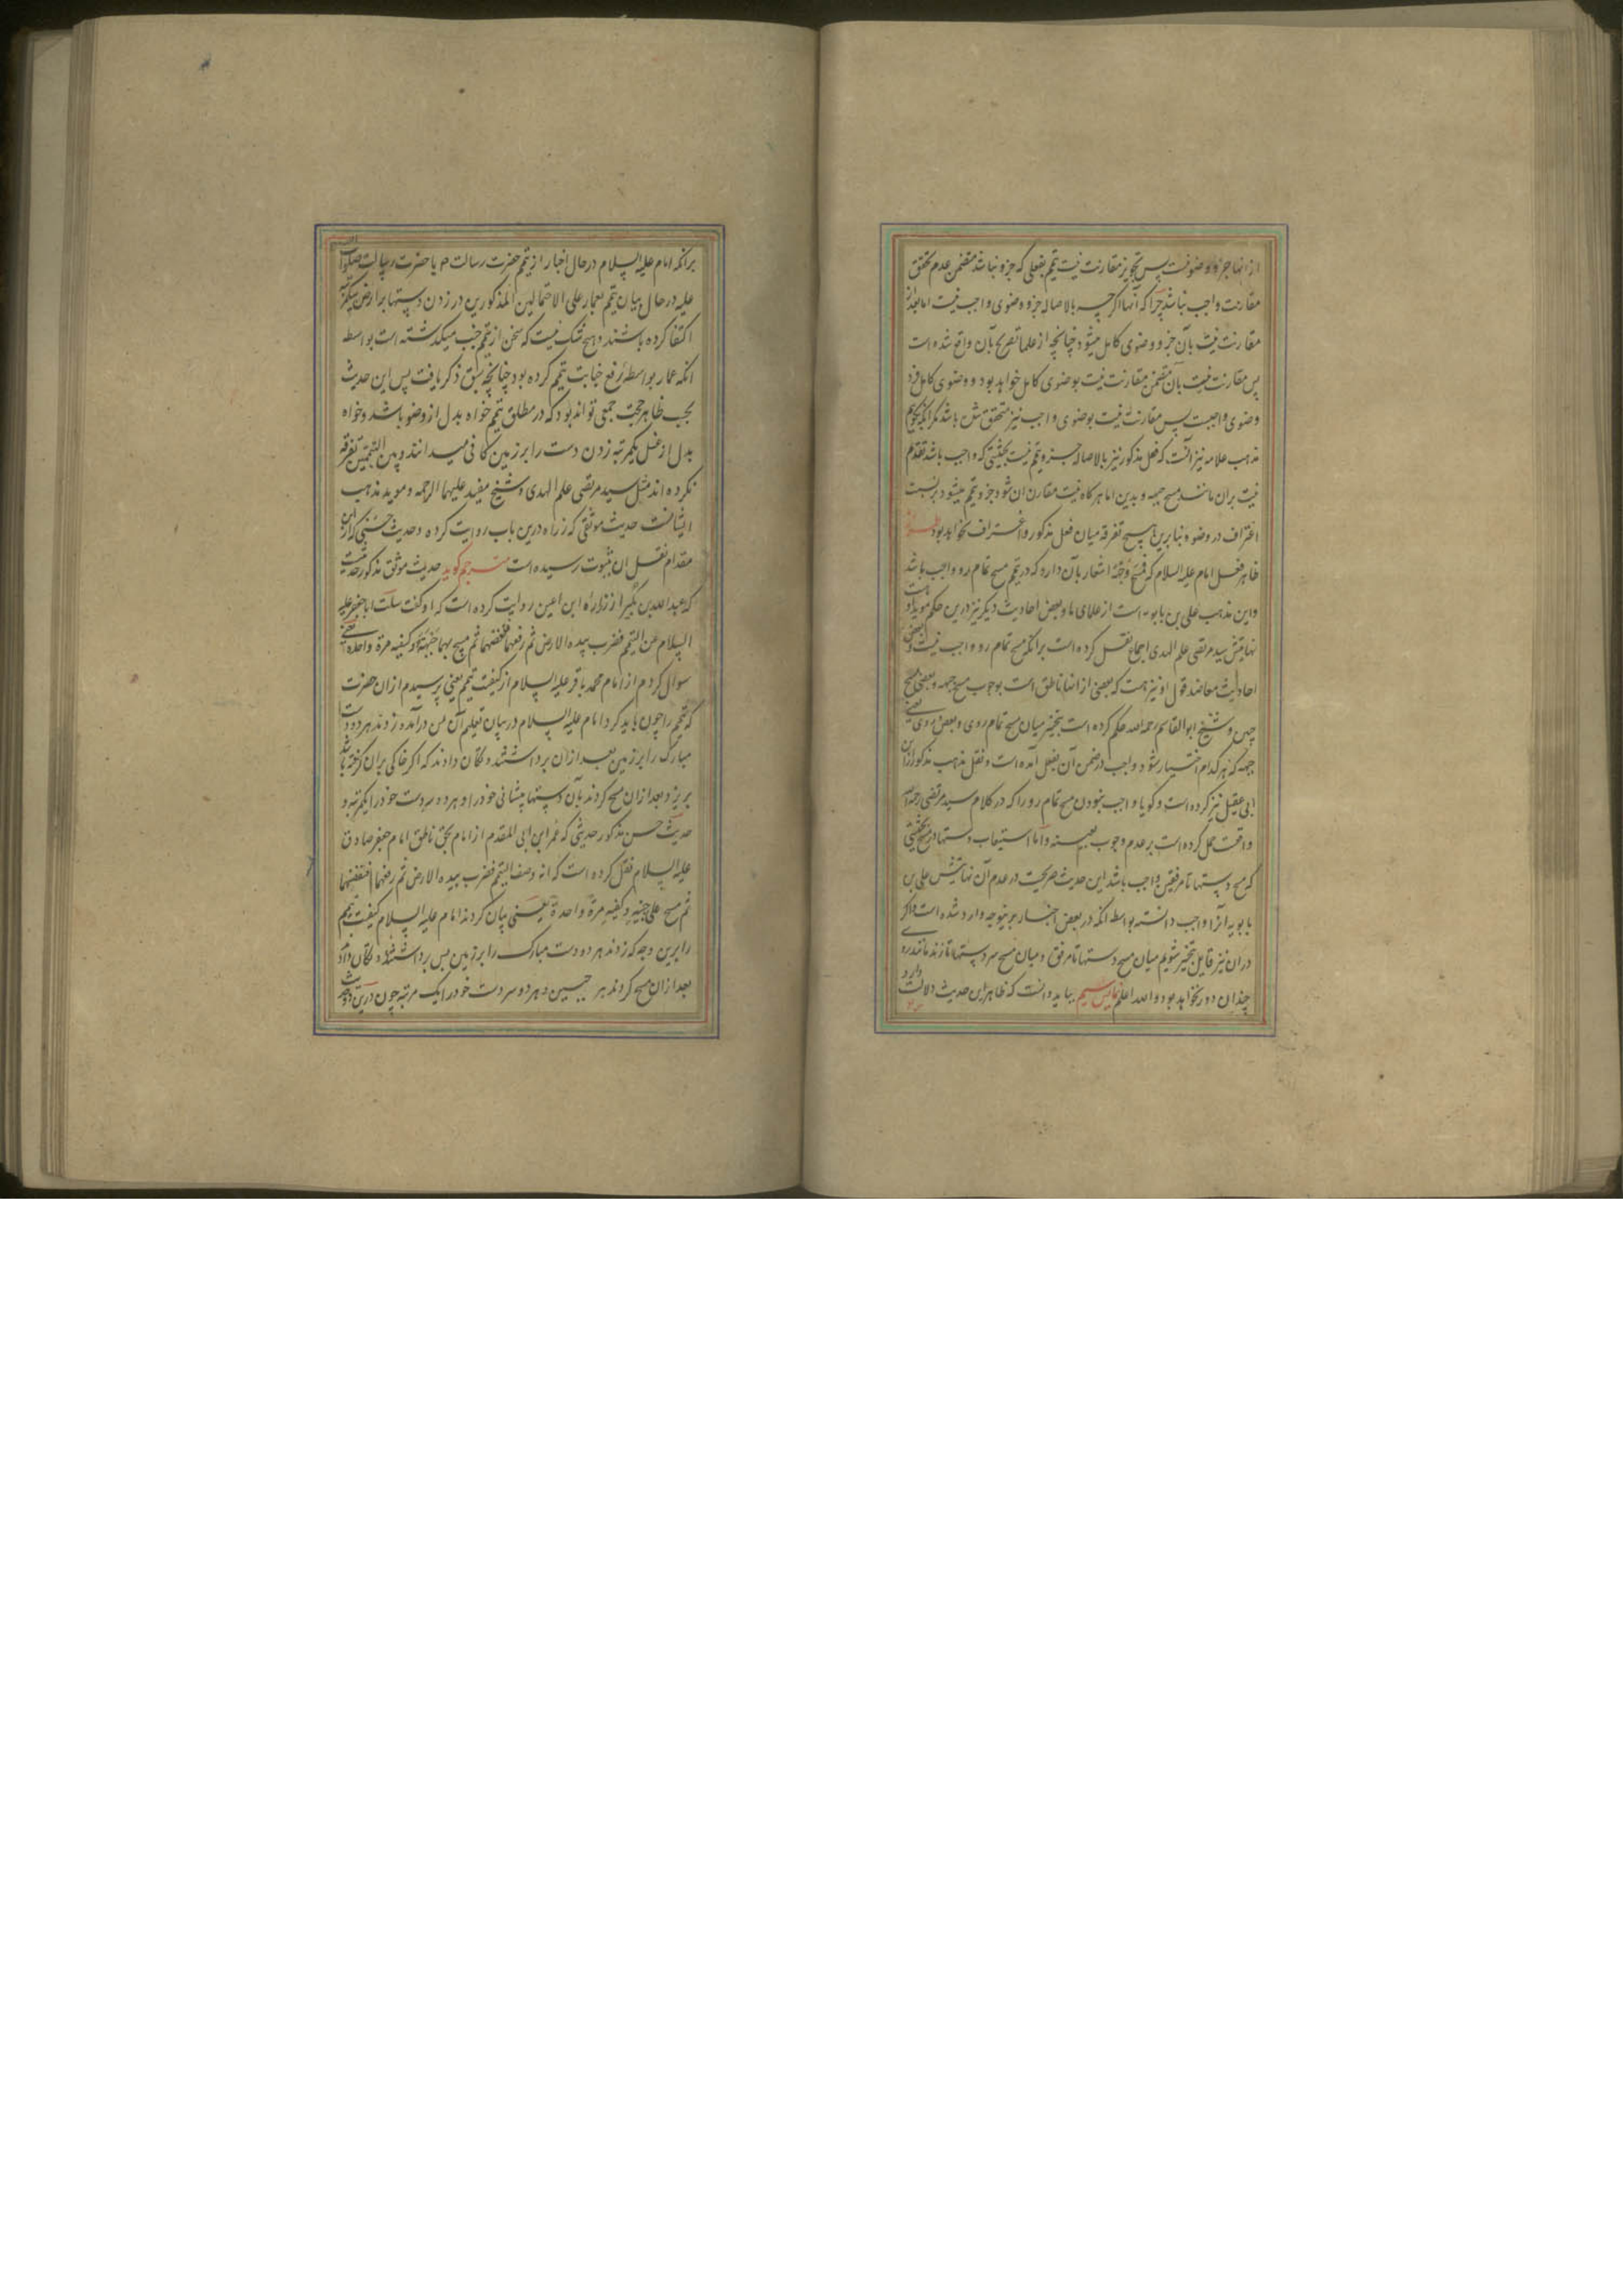 از آنها جزو وضو نیست پس تجویز مقارنت نیت تیمم بفعلی که جزو نباشد متضمن عدم تحقق
مقارنت واجب نباشد چرا که آنها اگرچه بالاصاله جزو وضوی واجب نیست اما بعد از
مقارنت نیت بآن جزو وضوی کامل میشود چنانچه از علما تصریح بآن واقع شده است
پس مقارنت نیت بآن متضمن مقارنت نیت بوضوی کامل خواهد بود و وضوی کامل فرد
وضوی واجبست پس مقارنت نیت بوضوی واجب نیز متحقق شده باشد مگر آنکه بگویم
مذهب علامه نیز آنست که فعل مذکور نیز بالاصاله جزو تیمم نیست بحیثیتی که واجب باشد تقدم
نیت بران مانند مسح جبهه و بدین اما هرگاه نیت مقارن آن شود جزو تیمم میشود بر نسبت
اغتراف در وضو و بنابرین هیچ تفرقه میان فعل مذکور و اغتراف نخواهد بود
ظاهر فعل امام علیه السلام که فمسح وجهه اشعار بآن دارد که در تیمم مسح تمام رو واجب باشد
و این مذهب علی بن بابویه است از علمای ما و بعض احادیث دیگر نیز درین حکم موید او
نهایتش سید مرتضی علم الهدی اجماع نقل کرده است برانکه مسح تمام رو واجب نیست و بعضی
احادیث معاضد قول او نیز هست که بعضی از آنها ناطق است بوجوب مسح جبهه و بعضی بمسح
جبین و شیخ ابوالقاسم رحمه الله حکم کرده است بتخییر میان مسح تمام روی و بعض روی یعنی
جبهه که هر کدام اختیار شود واجب در ضمن آن بفعل آمده است و نقل مذهب مذکور از ابن
ابی عقیل نیز کرده است و گویا واجب نبودن مسح تمام رو را که در کلام سید مرتضی رحمه الله
واقعست حمل کرده است بر عدم وجوب بعینه و اما استیعاب دستها در مسح بحیثیتی
که مسح دستها تا مرفقین واجب باشد این حدیث صریحست در عدم آن نهایتش علی بن
بابویه آنرا واجب دانسته بواسطه آنکه در بعض اخبار برینوجه وارد شده است و اگر
دران نیز قایل بتخییر شویم میان مسح دستها تا مرفق و میان مسح سر دستها تا زند مانند روی
چندان دور نخواهد بود والله اعلم بباید دانست که ظاهر این حدیث دلالت دارد
برانکه امام علیه السلام در حال اخبار از تیمم حضرت رسالت م یا حضرت رسالت صلوات الله
علیه در حال بیان تیمم بعمار علی الاحتمالین المذکورین در زدن دستها بر ارض بیکمرتبه
اکتفا کرده باشند و هیچ شک نیست که سخن از تیمم جنب میگذشته است بواسطه
آنکه عمار بواسطه رفع جنابت تیمم کرده بود چنانچه سبق ذکر یافت پس این حدیث
بحسب ظاهر حجت جمعی تواند بود که در مطلق تیمم خواه بدل از وضو باشد و خواه
بدل از غسل یکمرتبه زدن دست را بر زمین کافی میدانند و بین التیممین تفرقه
نکرده اند مثل سید مرتضی علم الهدی و شیخ مفید علیهما الرحمه و موید مذهب
ایشانست حدیث موثقی که زراره درین باب روایت کرده و حدیث حسنی که از ابن
مقدام نقل آن بثبوت رسیده است مترجم گوید حدیث موثق مذکور حدیثیست
که عبدالله بن بکیر از زراره ابن اعین روایت کرده است که او گفت سالت ابا جعفر علیه
السلام عن التیمم فضرب بیده الارض ثم رفعها فنفضهما ثم مسح بهما جبهته و کفیه مرة واحدة یعنی
سوال کردم از امام محمد باقر علیه السلام از کیفیت تیمم یعنی پرسیدم ازان حضرت
که تیمم را چون باید کرد امام علیه السلام در بیان تعلیم آن بمن درآمده زدند هر دو دست
مبارک را بر زمین بعد ازان برداشتند و تکان دادند که اگر خاکی بران گرفته باشد
بریزد بعد ازان مسح کردند بآن دستها پیشانی خود را و هر دو سر دست خود را یکمرتبه و
حدیث حسن مذکور حدیثی که عمر ابن ابی المقدام از امام بحق ناطق امام جعفر صادق
علیه السلام نقل کرده است که انه وصف التیمم فضرب بیده الارض ثم رفعها فنفضهما
ثم مسح علی جبینیه و کفیه مرة واحدة یعنی بیان کردند امام علیه السلام کیفیت تیمم
را برین وجه که زدند هر دو دست مبارک را بر زمین پس برداشتند و تکان دادند
بعد ازان مسح کردند هر جبین و هر دو سر دست خود را یک مرتبه چون درین دو حدیث